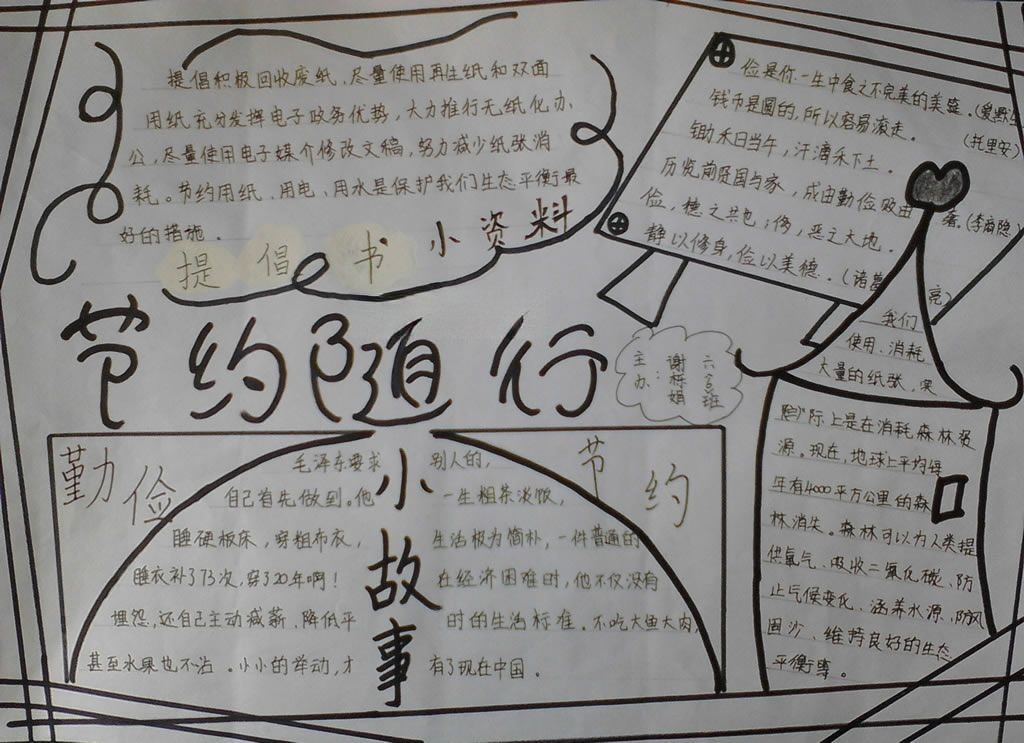 提倡积极回收废纸、尽量使用再生纸和双面
用纸充分发挥电子政务优势，大力推行无纸化办
公，尽量使用电子媒介修改文稿，努力减少纸张消
耗。节约用纸、用电、用水是保护我们生态平衡最
好的措施．
提倡书小资料
俭是你一生中食之不完美的美盛．
钱币是圆的，所以容易滚走．
(托里安)
锄禾日当午，汗滴禾下土．
历览前贤国与家，成由勤俭败由
奢．(李商隐)
俭，德之共也；侈，恶之大地．
静以修身，俭以美德．(诸葛
亮)
节约随行
主办：谢梅娟
六 班
我们
使用、消耗
大量的纸张，实
际上是在消耗森林资
源。现在，地球上平均每
年有4000平方公里的森
林消失。森林可以为人类提
供氧气、吸收二氧化碳、防
止气候变化、涵养水源、防风
固沙、维持良好的生态
平衡等。
勤俭
节约
小故事
毛泽东要求别人的，
自己首先做到。他一生粗茶淡饭，
睡硬板床，穿粗布衣，生活极为简朴，一件普通的
睡衣补了73次，穿了20年啊！在经济困难时，他不仅没有
埋怨，还自己主动减薪、降低平时的生活标准．不吃大鱼大肉，
甚至水果也不沾．小小的举动，才有了现在中国．